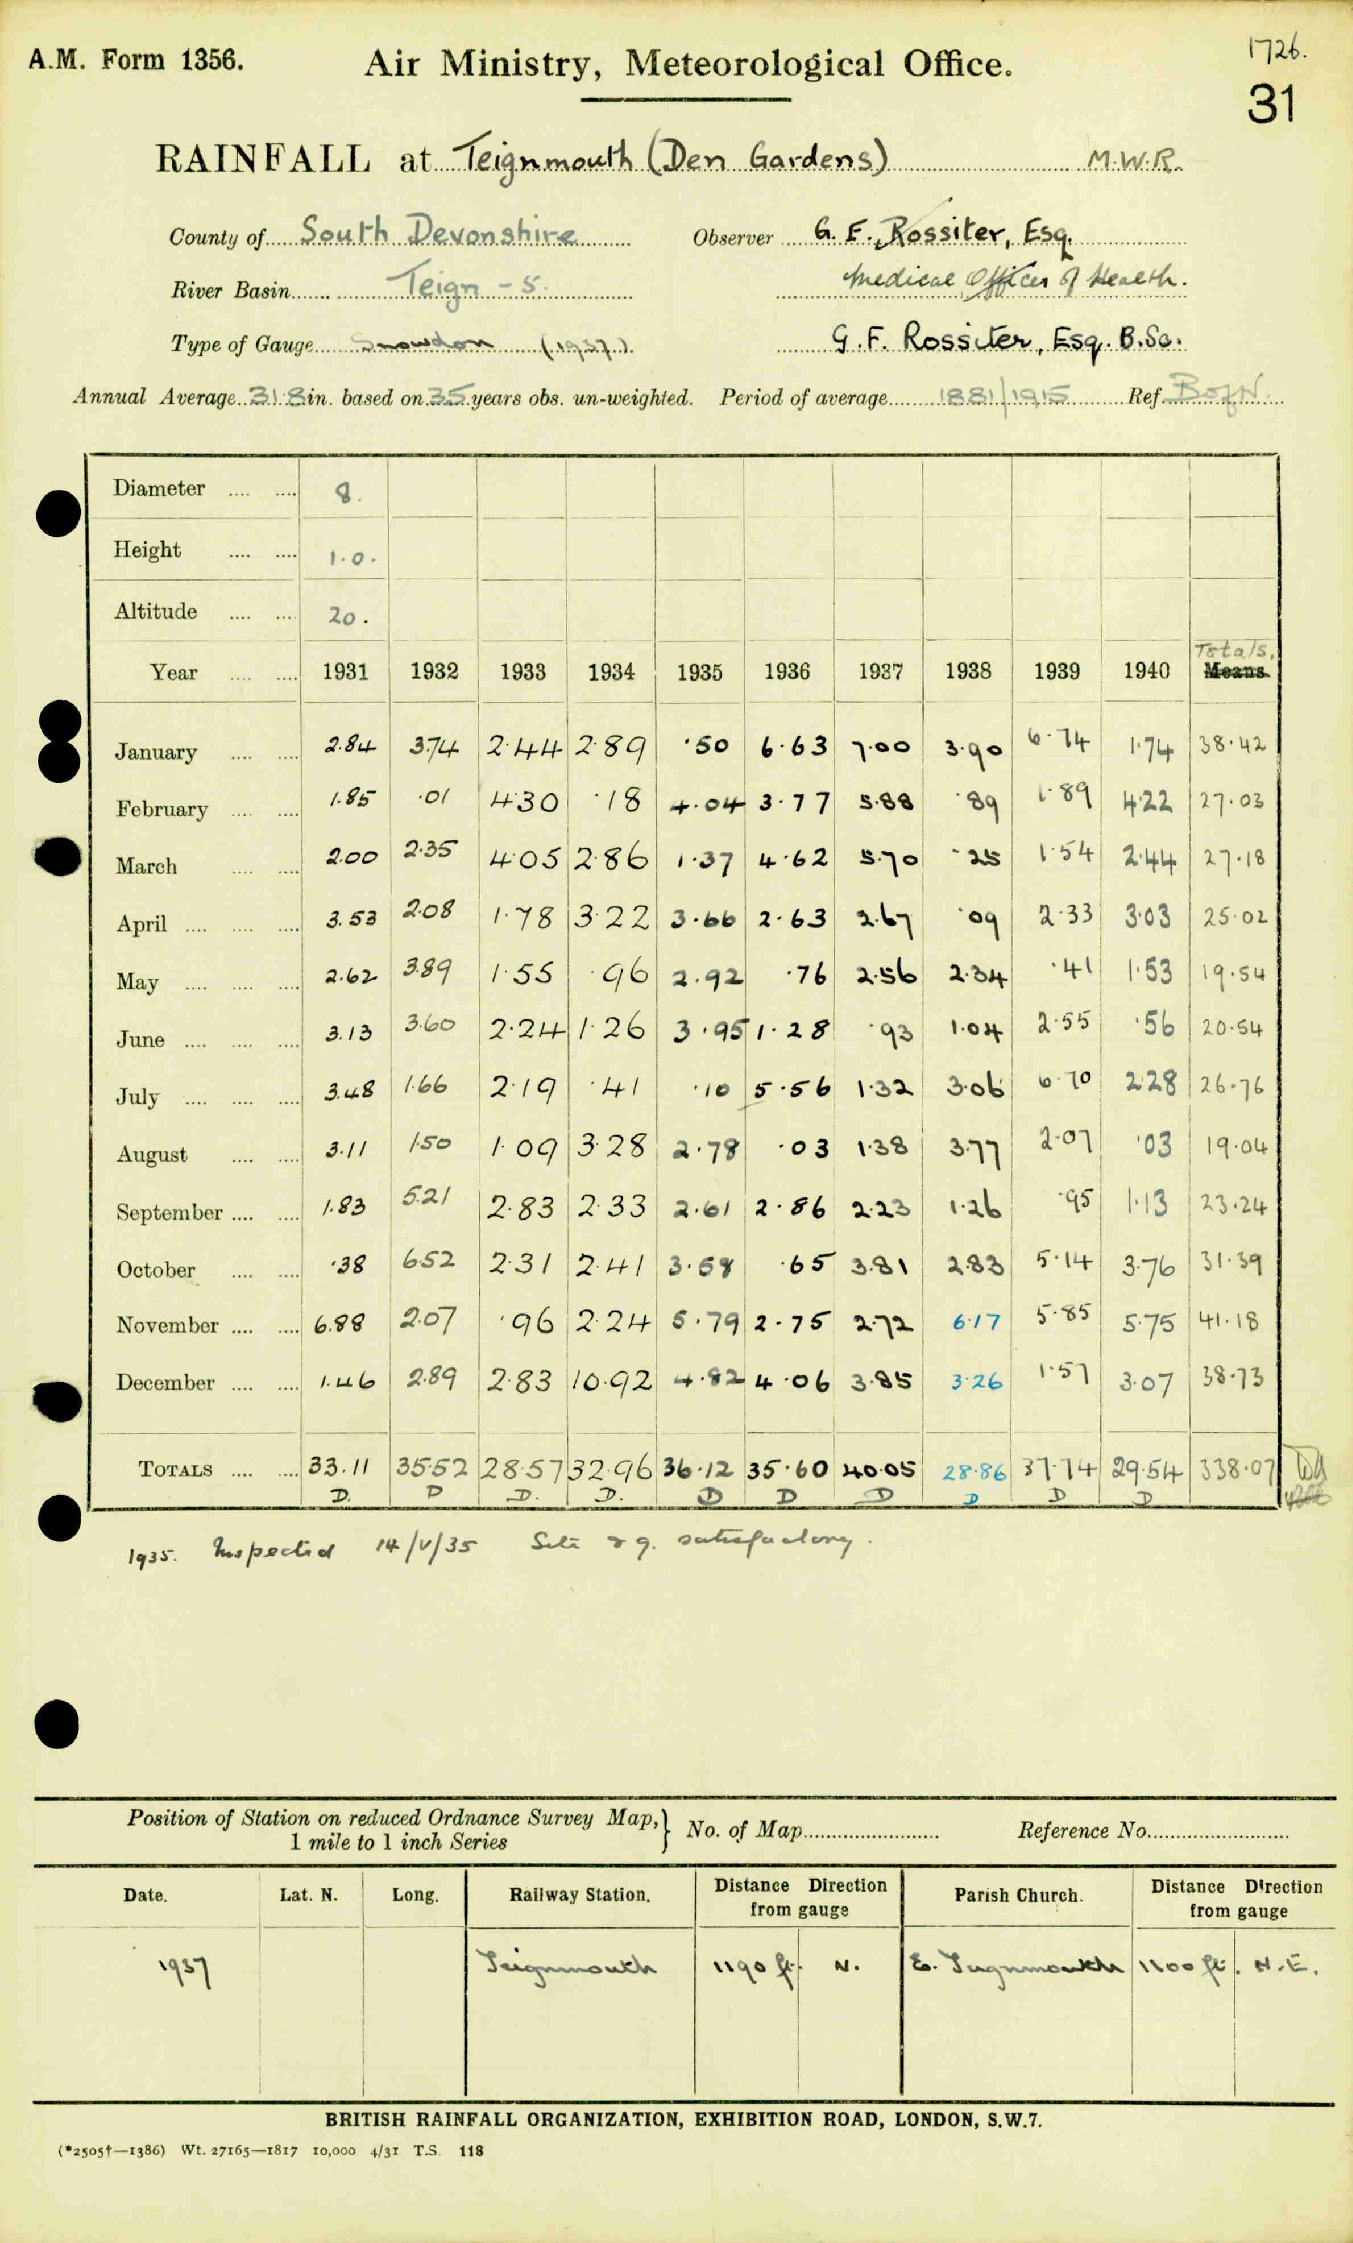 A.M. Form 1356.
Air Ministry, Meteorological Office.
1726.
31
RAINFALL at Teignmouth (Den Gardens) M.W.R.
County of South Devonshire Observer G. F. Rossiter, Esq.
River Basin Teign - 5. Medical Officer of Health.
Type of Gauge Snowdon (1937). G. F. Rossiter, Esq. B.Sc.
Annual Average 31.8 in. based on 35 years obs. un-weighted. Period of average 1881/1915 Ref. B of N.
Diameter .... .... 8.
Height .... .... 1.0.
Altitude .... .... 20.
Totals.
Year .... .... 1931 1932 1933 1934 1935 1936 1937 1938 1939 1940 Means
January .... .... 2.84 3.74 2.44 2.89 .50 6.63 7.00 3.90 6.74 1.74 38.42
February .... .... 1.85 .01 4.30 .18 4.04 3.77 5.88 .89 1.89 4.22 27.03
March .... .... 2.00 2.35 4.05 2.86 1.37 4.62 5.70 .25 1.54 2.44 27.18
April .... .... .... 3.53 2.08 1.78 3.22 3.66 2.63 2.67 .09 2.33 3.03 25.02
May .... .... .... 2.62 3.89 1.55 .96 2.92 .76 2.56 2.34 .41 1.53 19.54
June .... .... .... 3.13 3.60 2.24 1.26 3.95 1.28 .93 1.04 2.55 .56 20.54
July .... .... .... 3.48 1.66 2.19 .41 .10 5.56 1.32 3.06 6.70 2.28 26.76
August .... .... 3.11 1.50 1.09 3.28 2.78 .03 1.38 3.77 2.07 .03 19.04
September .... .... 1.83 5.21 2.83 2.33 2.61 2.86 2.23 1.26 .95 1.13 23.24
October .... .... .38 6.52 2.31 2.41 3.58 .65 3.81 2.83 5.14 3.76 31.39
November .... .... 6.88 2.07 .96 2.24 5.79 2.75 2.72 6.17 5.85 5.75 41.18
December .... .... 1.46 2.89 2.83 10.92 4.82 4.06 3.85 3.26 1.57 3.07 38.73
TOTALS .... .... 33.11 35.52 28.57 32.96 36.12 35.60 40.05 28.86 37.74 29.54 338.07
D. D D. D. D D D D D D
1935. Inspected 14/V/35 Site & g. satisfactory.
Position of Station on reduced Ordnance Survey Map,} No. of Map Reference No.
1 mile to 1 inch Series
Date. Lat. N. Long. Railway Station. Distance Direction from gauge Parish Church. Distance Direction from gauge
1937 Teignmouth 1190 ft. N. E. Teignmouth 1100 ft. N.E.
BRITISH RAINFALL ORGANIZATION, EXHIBITION ROAD, LONDON, S.W.7.
(*2505†—1386) Wt. 27165—1817 10,000 4/31 T.S. 118